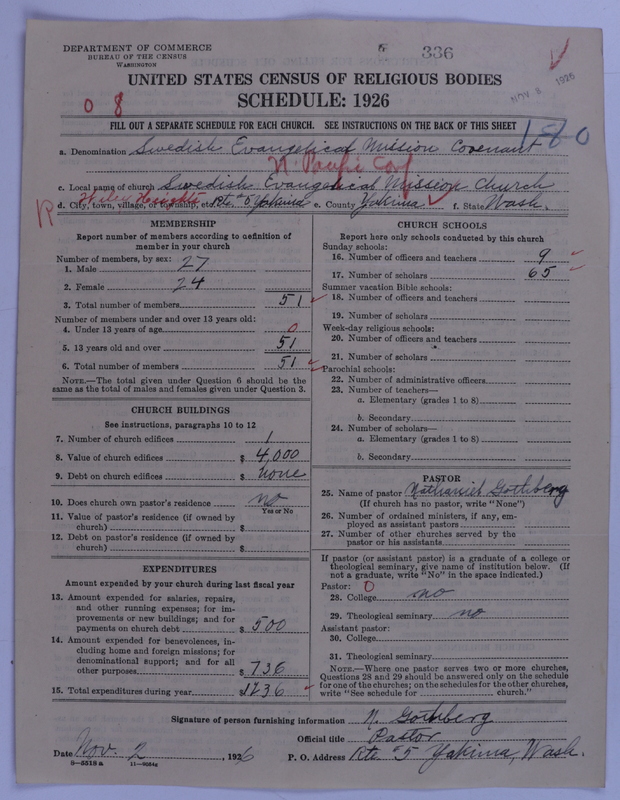 DEPARTMENT OF COMMERCE
BUREAU OF THE CENSUS
WASHINGTON
336
NOV 8 1926
UNITED STATES CENSUS OF RELIGIOUS BODIES
SCHEDULE: 1926
0 8
FILL OUT A SEPARATE SCHEDULE FOR EACH CHURCH. SEE INSTRUCTIONS ON THE BACK OF THIS SHEET
180
a. Denomination Swedish Evangelical Mission Covenant
N. Pacific Conf
c. Local name of church Swedish Evangelical Mission Church
Wiley Heights
R
d. City, town, village, or township, etc. Rte. #5 Yakima e. County Yakima f. State Wash.
MEMBERSHIP
Report number of members according to definition of member in your church
Number of members, by sex:
1. Male 27
2. Female 24
3. Total number of members 51
Number of members under and over 13 years old:
4. Under 13 years of age 0
5. 13 years old and over 51
6. Total number of members 51
NOTE.—The total given under Question 6 should be the
same as the total of males and females given under Question 3.
CHURCH BUILDINGS
See instructions, paragraphs 10 to 12
7. Number of church edifices 1
8. Value of church edifices $ 4,000
9. Debt on church edifices $ none
10. Does church own pastor's residence no
Yes or No
11. Value of pastor's residence (if owned by
church) $
12. Debt on pastor's residence (if owned by
church) $
EXPENDITURES
Amount expended by your church during last fiscal year
13. Amount expended for salaries, repairs,
and other running expenses; for im-
provements or new buildings; and for
payments on church debt $ 500
14. Amount expended for benevolences, in-
cluding home and foreign missions; for
denominational support; and for all
other purposes $ 736
15. Total expenditures during year $1236
CHURCH SCHOOLS
Report here only schools conducted by this church
Sunday schools:
16. Number of officers and teachers 9
17. Number of scholars 65
Summer vacation Bible schools:
18. Number of officers and teachers
19. Number of scholars
Week-day religious schools:
20. Number of officers and teachers
21. Number of scholars
Parochial schools:
22. Number of administrative officers
23. Number of teachers—
a. Elementary (grades 1 to 8)
b. Secondary
24. Number of scholars—
a. Elementary (grades 1 to 8)
b. Secondary
PASTOR
25. Name of pastor Nathaniel Gothberg
(If church has no pastor, write "None")
26. Number of ordained ministers, if any, em-
ployed as assistant pastors
27. Number of other churches served by the
pastor or his assistants
If pastor (or assistant pastor) is a graduate of a college or
theological seminary, give name of institution below. (If
not a graduate, write "No" in the space indicated.)
Pastor: 0
28. College no
29. Theological seminary no
Assistant pastor:
30. College
31. Theological seminary
NOTE.—Where one pastor serves two or more churches,
Questions 28 and 29 should be answered only on the schedule
for one of the churches; on the schedules for the other churches,
write "See schedule for church."
Signature of person furnishing information N. Gothberg
Official title Pastor
Date Nov. 2, 1926
P. O. Address Rte #5 Yakima, Wash.